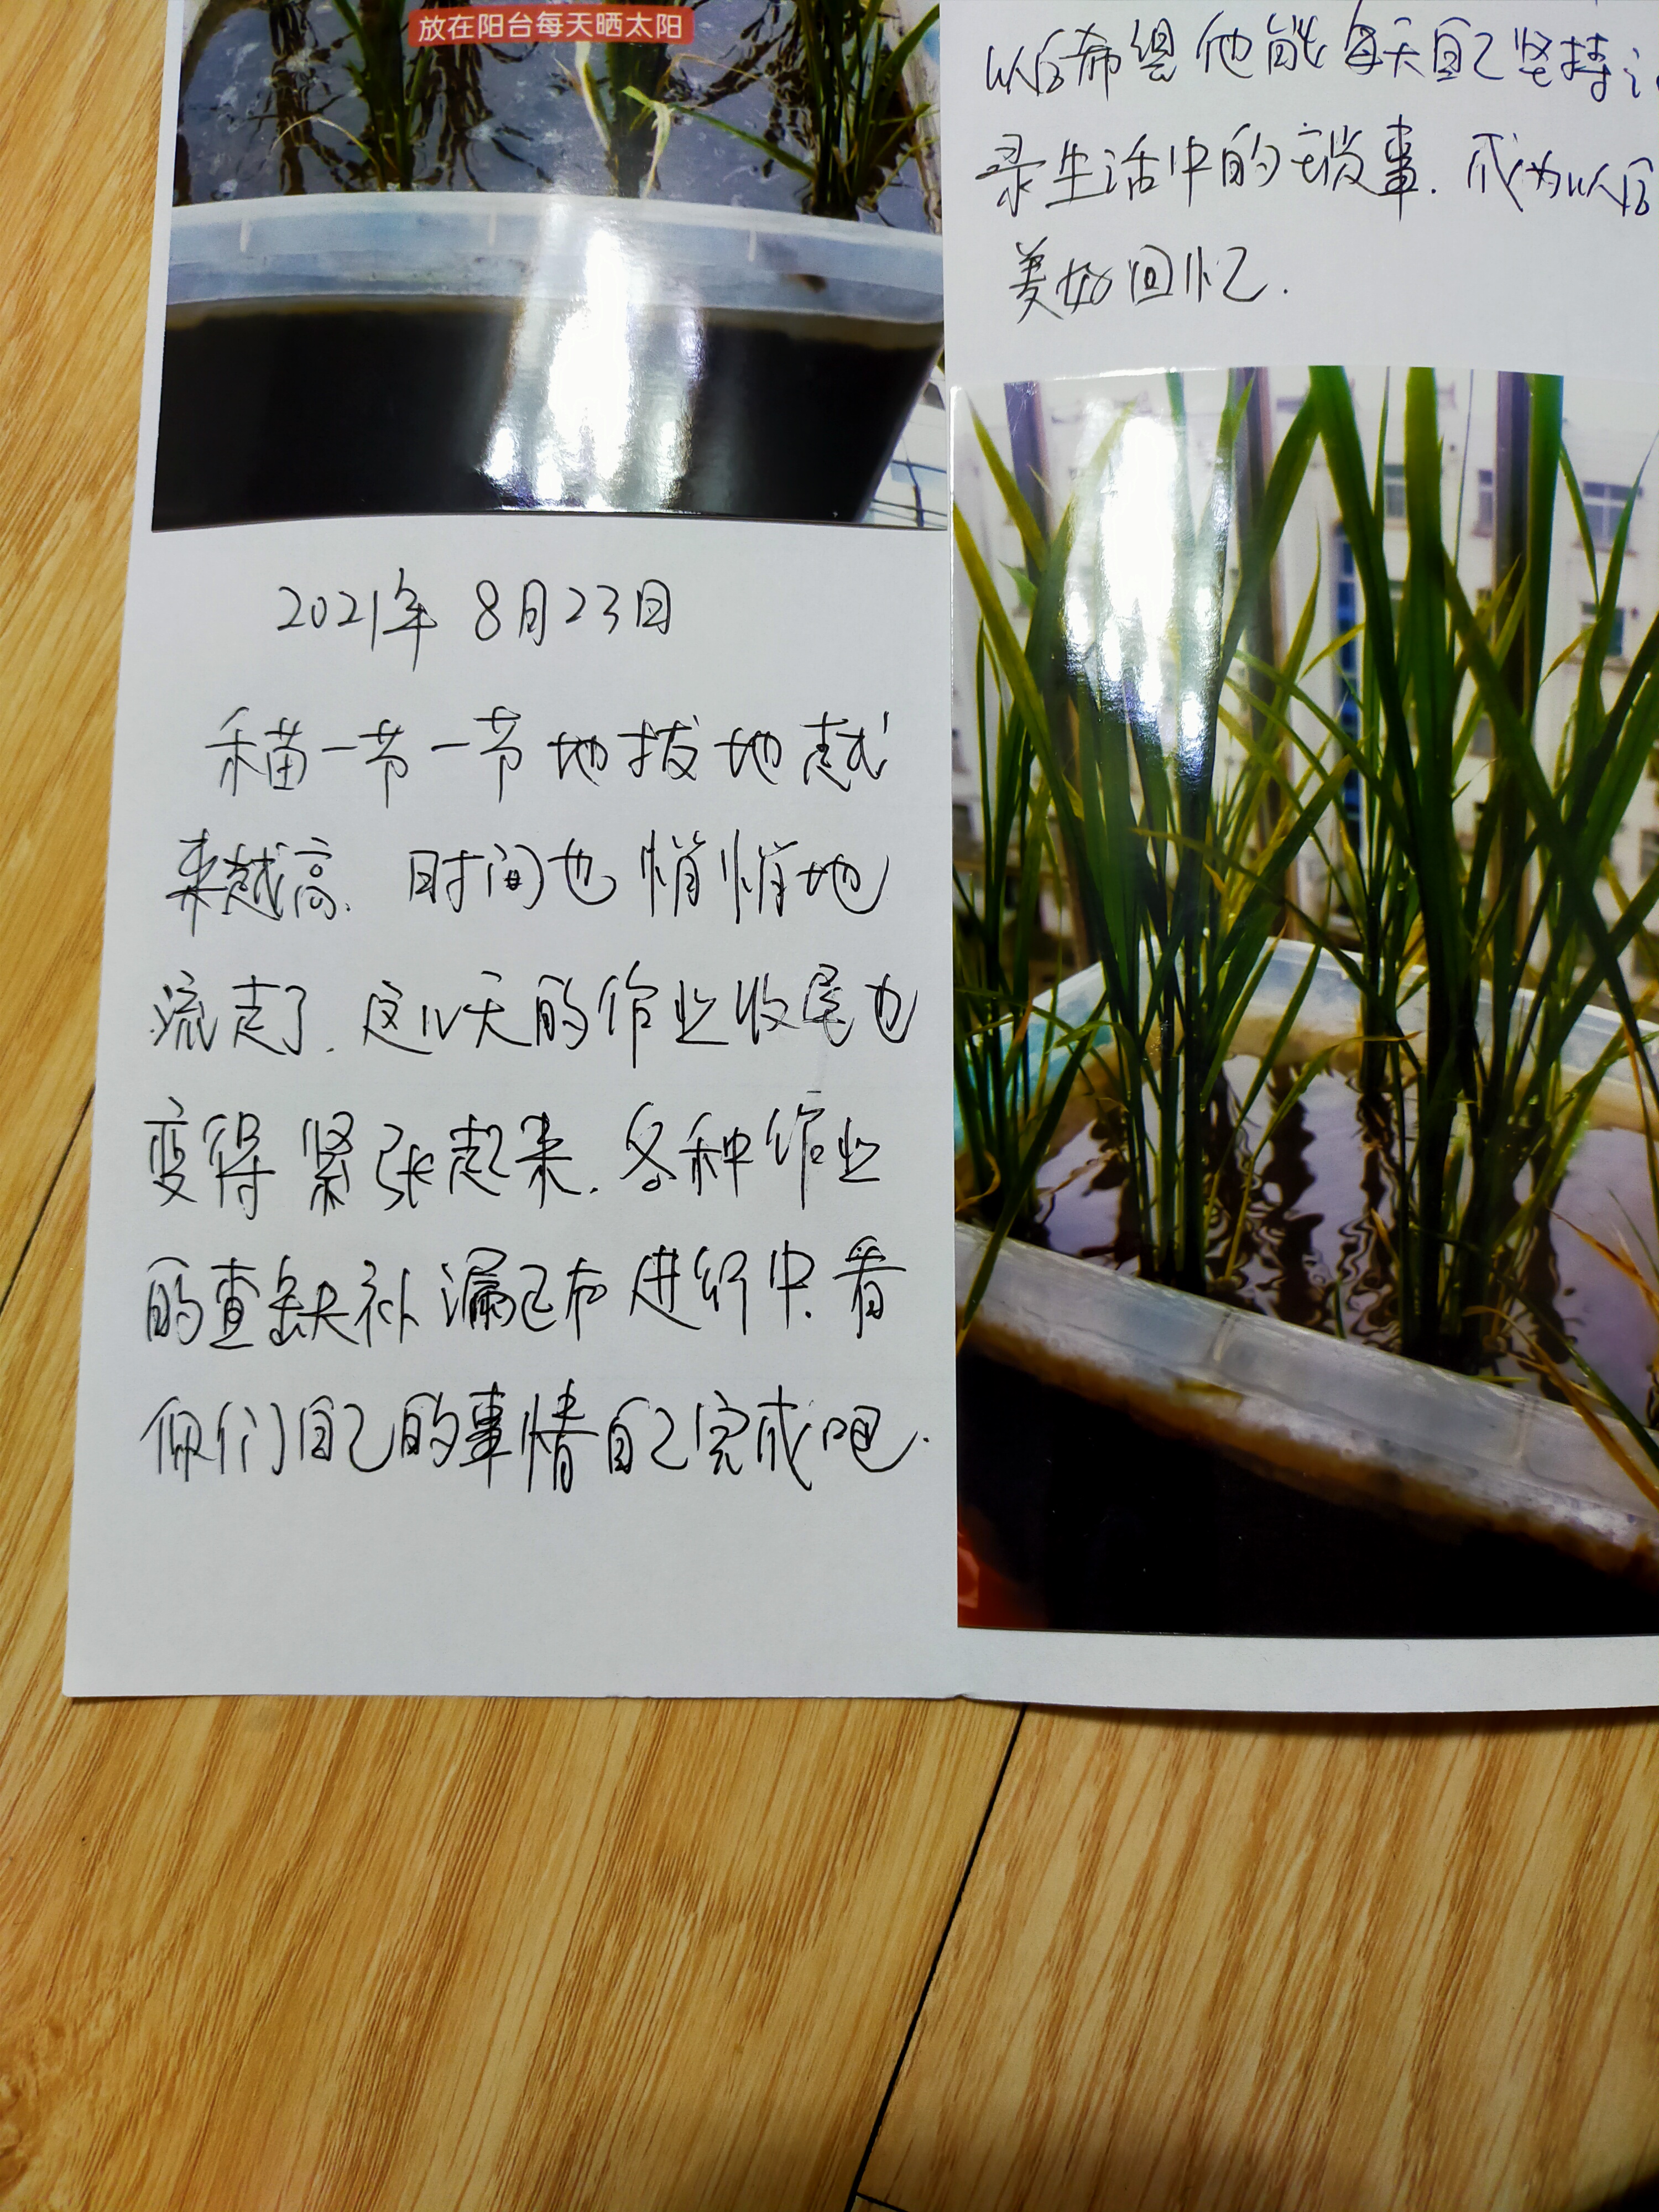 放在阳台每天晒太阳
2021年 8月23日
禾苗一节一节地拔地越
来越高. 时间也悄悄地
流走了. 这几天的作业收尾也
变得紧张起来. 各种作业
的查缺补漏已在进行中. 看
你们自己的事情自己完成吧.
以后希望他能每天自己坚持记
录生活中的琐事. 成为以后
美好回忆.